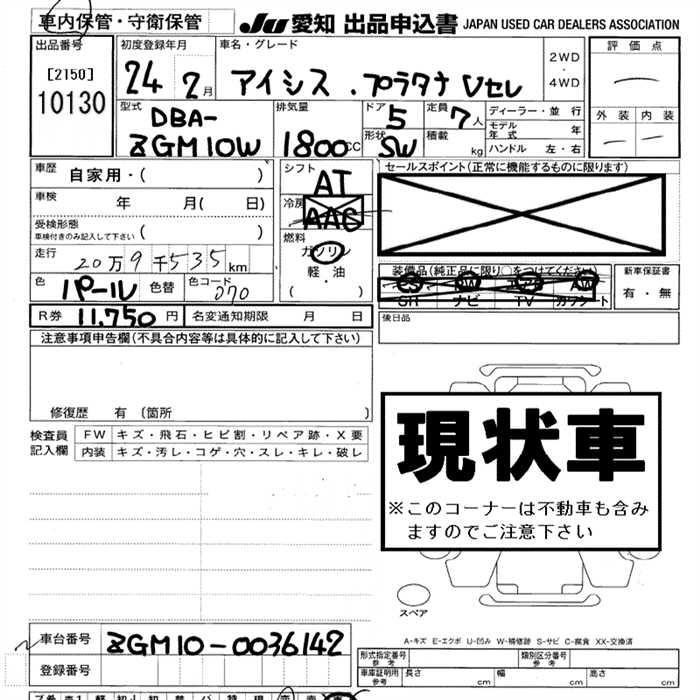 車内保管・守衛保管
JU 愛知 出品申込書 JAPAN USED CAR DEALERS ASSOCIATION
出品番号
[2150]
10130
初度登録年月
24 2月
車名・グレード
アイシス・プラタナ Vセレ
2WD
・
4WD
評価点
外装 内装
型式
DBA-
ZGM10W
排気量
1800CC
ドア 5
形状 SW
定員 7人
積載 kg
ディーラー・並行
モデル年式 年
ハンドル 左・右
車歴 自家用・( )
車検 年 月( 日)
受検形態
車検付きのみ記入して下さい ( )
走行 20万9千535km
色 パール 色替 色コード 070
シフト AT
冷房 AAC
燃料
ガソリン
軽・油
( ・ )
セールスポイント(正常に機能するものに限ります)
装備品(純正品に限り○をつけてください)
PW エアB AW
SH ナビ TV カワシート
新車保証書
有・無
後日品
R券 11,750円 名変通知期限 月 日
注意事項申告欄(不具合内容等は具体的に記入して下さい)
修復歴 有(箇所 )
検査員記入欄
FW キズ・飛石・ヒビ割・リペア跡・X要
内装 キズ・汚レ・コゲ・穴・スレ・キレ・破レ
現状車
※このコーナーは不動車も含み
ますのでご注意下さい
スペア
A-キズ E-エクボ U-凹み W-補修跡 S-サビ C-腐食 XX-交換済
車台番号 ZGM10-0036142
登録番号
形式指定番号 参考
類別区分番号 参考
車庫証明用 参考 長さ cm 幅 cm 高さ cm